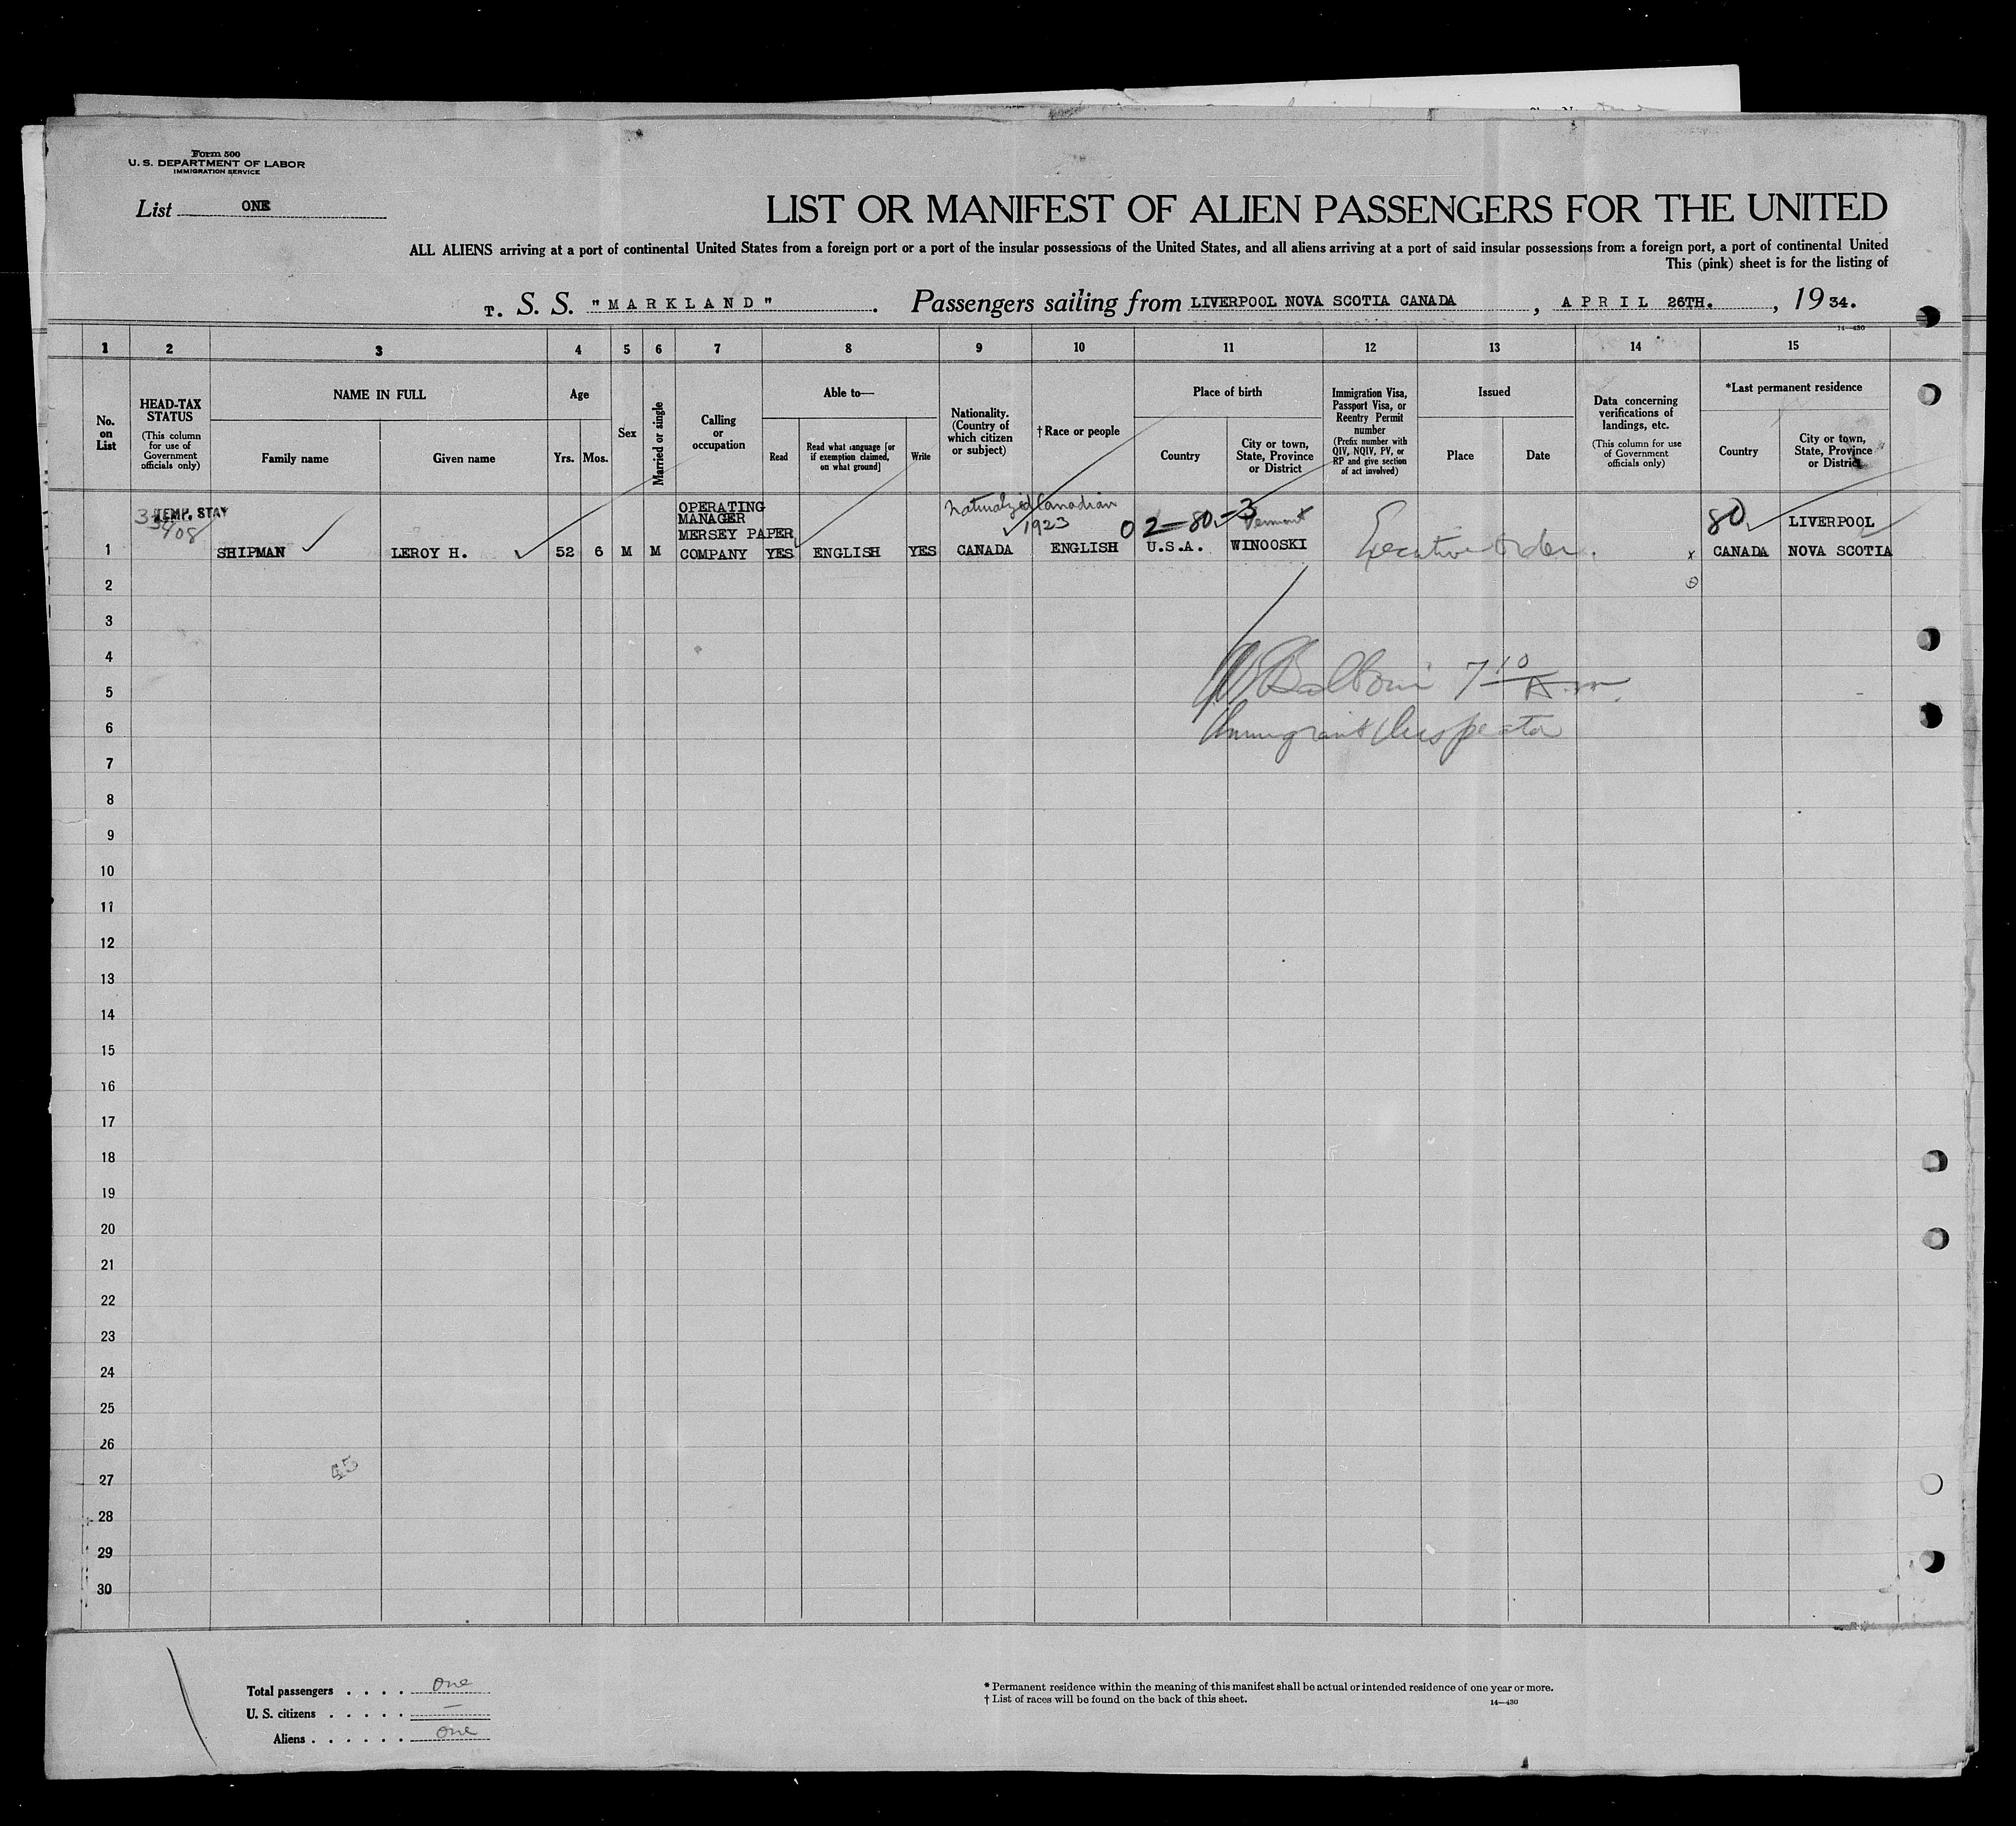 Form 500
U. S. DEPARTMENT OF LABOR
IMMIGRATION SERVICE
List ONE
LIST OR MANIFEST OF ALIEN PASSENGERS FOR THE UNITED
ALL ALIENS arriving at a port of continental United States from a foreign port or a port of the insular possessions of the United States, and all aliens arriving at a port of said insular possessions from a foreign port, a port of continental United
This (pink) sheet is for the listing of
T. S. S. "MARKLAND". Passengers sailing from LIVERPOOL NOVA SCOTIA CANADA, APRIL 26TH., 1934.
14—430
1 2 3 4 5 6 7 8 9 10 11 12 13 14 15
No. on List
HEAD-TAX STATUS
(This column for use of Government officials only)
NAME IN FULL
Family name
Given name
Age
Yrs. Mos.
Sex
Married or single
Calling or occupation
Able to—
Read
Read what language [or if exemption claimed, on what ground]
Write
Nationality. (Country of which citizen or subject)
†Race or people
Place of birth
Country
City or town, State, Province or District
Immigration Visa, Passport Visa, or Reentry Permit number
(Prefix number with QIV, NQIV, PV, or RP and give section of act involved)
Issued
Place
Date
Data concerning verifications of landings, etc.
(This column for use of Government officials only)
*Last permanent residence
Country
City or town, State, Province or District
TEMP. STAY
OPERATING
MANAGER
MERSEY PAPER
Naturalized Canadian
1923
02-80-3
Vermont
80
LIVERPOOL
1 SHIPMAN LEROY H. 52 6 M M COMPANY YES ENGLISH YES CANADA ENGLISH U.S.A. WINOOSKI Executive Order. x CANADA NOVA SCOTIA
2
3
4
5
7 10 A.m.
6
Immigrant Inspector
7
8
9
10
11
12
13
14
15
16
17
18
19
20
21
22
23
24
25
26
27
45
28
29
30
Total passengers . . . . one
U. S. citizens . . . . . —
Aliens . . . . . . one
* Permanent residence within the meaning of this manifest shall be actual or intended residence of one year or more.
† List of races will be found on the back of this sheet.
14—430